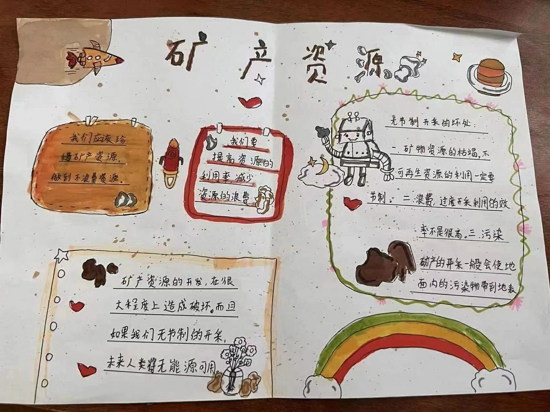 矿产资源
我们应该珍
惜矿产资源,
做到不浪费资源.
我们要
提高资源的
利用率,减少
资源的浪费
无节制开采的坏处:
一.矿物资源的枯竭,不
可再生资源的利用一定要
节制,二.浪费,过度开采利用的效
率不是很高,三.污染
矿产的开采一般会使地
面内的污染物带到地表
矿产资源的开发,在很
大程度上造成破坏,而且
如果我们无节制的开采,
未来人类将无能源可用